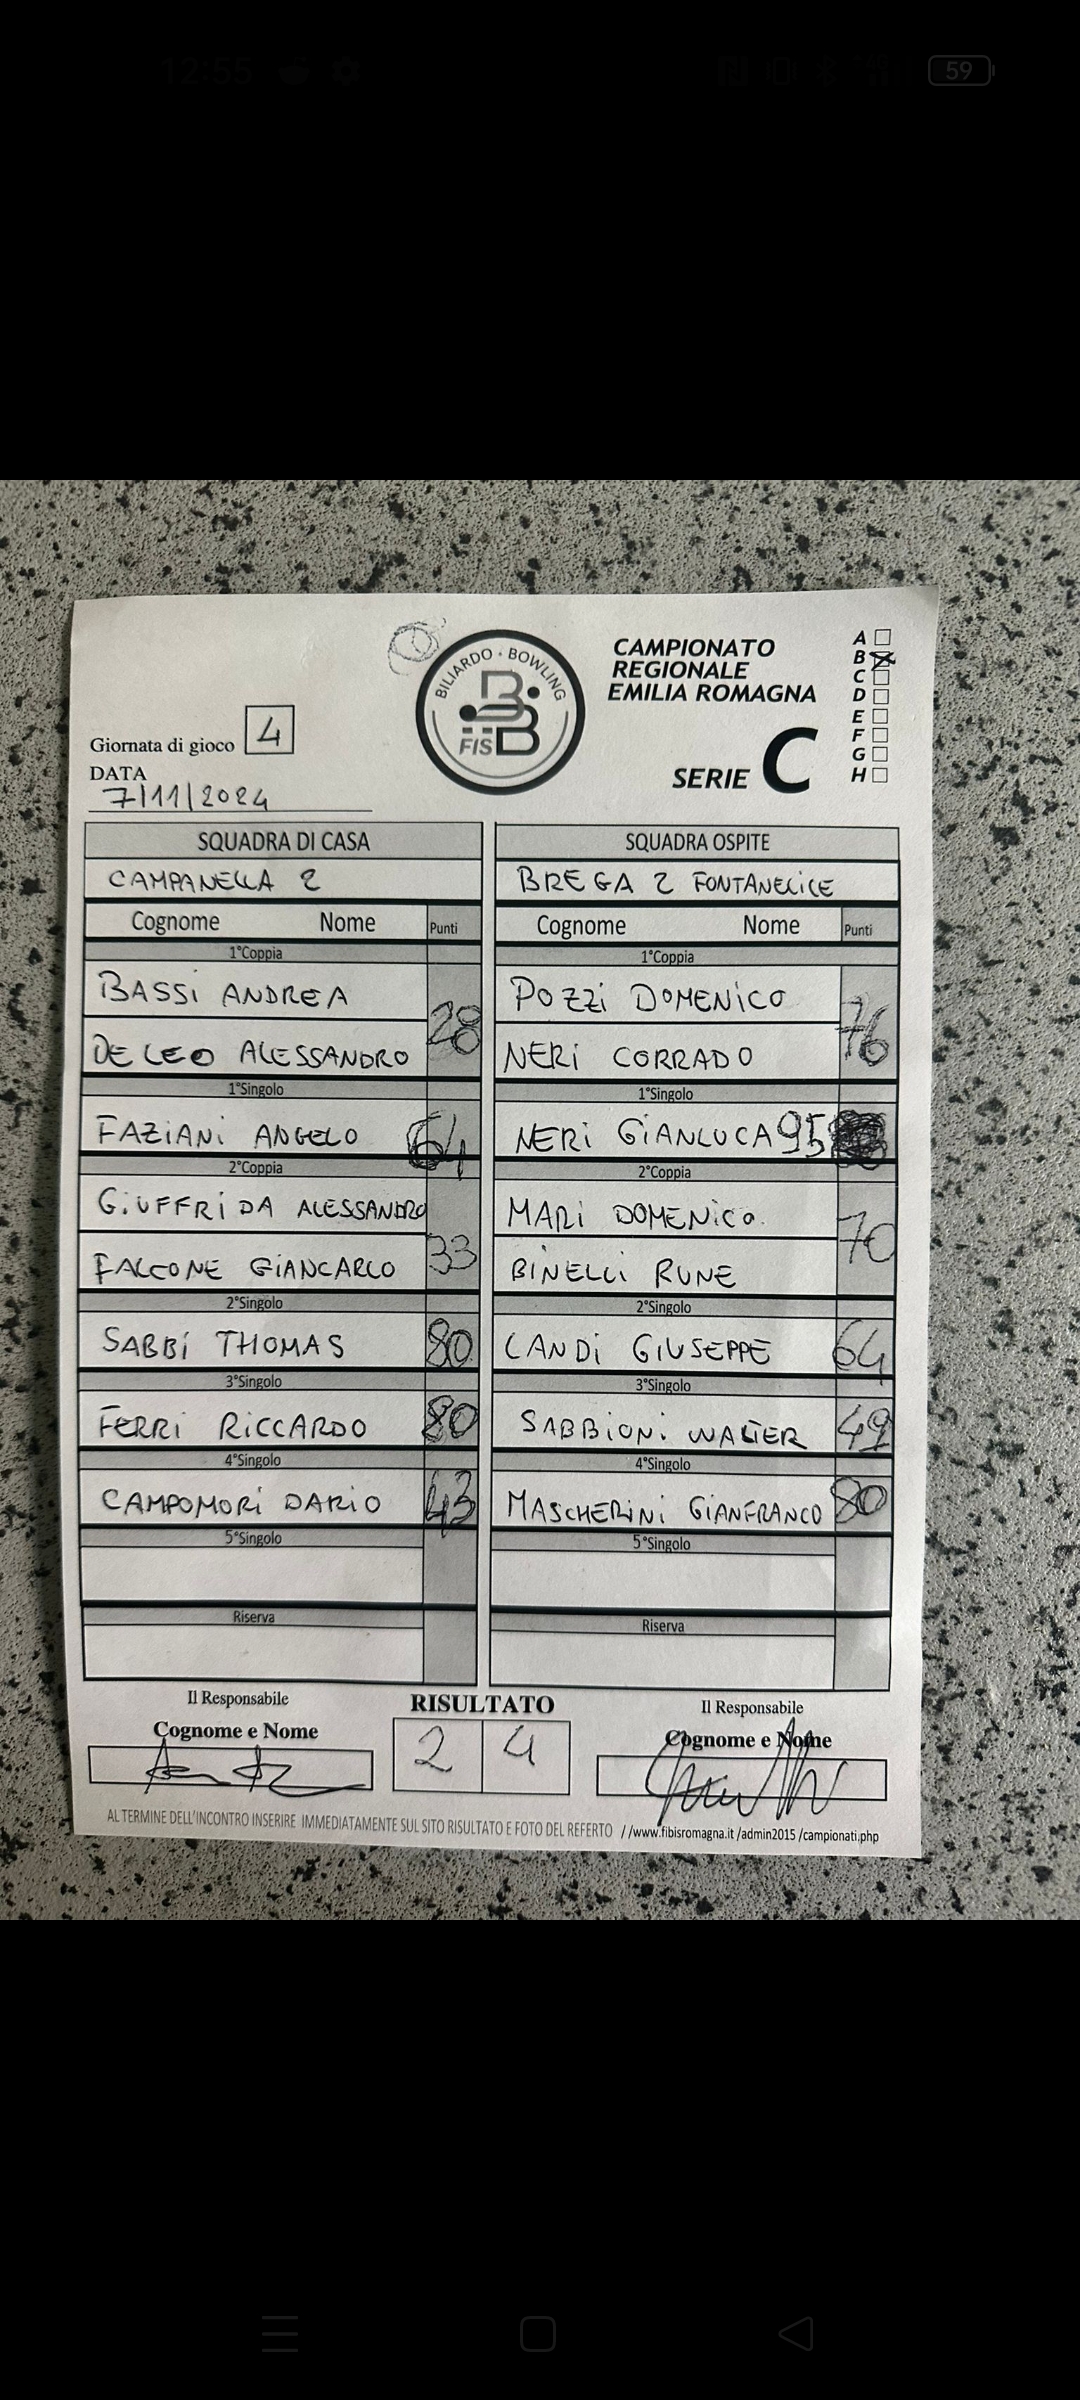 12:55
59
BILIARDO · BOWLING
FISBB
CAMPIONATO
REGIONALE
EMILIA ROMAGNA
SERIE C
A
B
C
D
E
F
G
H
Giornata di gioco 4
DATA
7/11/2024
SQUADRA DI CASA
CAMPANELLA 2
Cognome Nome Punti
1°Coppia
BASSI ANDREA
28
DE LEO ALESSANDRO
1°Singolo
FAZIANI ANGELO 64
2°Coppia
GIUFFRIDA ALESSANDRO
33
FALCONE GIANCARLO
2°Singolo
SABBI THOMAS 80
3°Singolo
FERRI RICCARDO 80
4°Singolo
CAMPOMORI DARIO 43
5°Singolo
Riserva
Il Responsabile
Cognome e Nome
SQUADRA OSPITE
BREGA 2 FONTANELICE
Cognome Nome Punti
1°Coppia
POZZI DOMENICO
76
NERI CORRADO
1°Singolo
NERI GIANLUCA 95
2°Coppia
MARI DOMENICO
70
BINELLI RUNE
2°Singolo
CANDI GIUSEPPE 64
3°Singolo
SABBIONI WALTER 49
4°Singolo
MASCHERINI GIANFRANCO 80
5°Singolo
Riserva
Il Responsabile
Cognome e Nome
RISULTATO
2 4
AL TERMINE DELL'INCONTRO INSERIRE IMMEDIATAMENTE SUL SITO RISULTATO E FOTO DEL REFERTO //www.fibisromagna.it /admin2015 /campionati.php